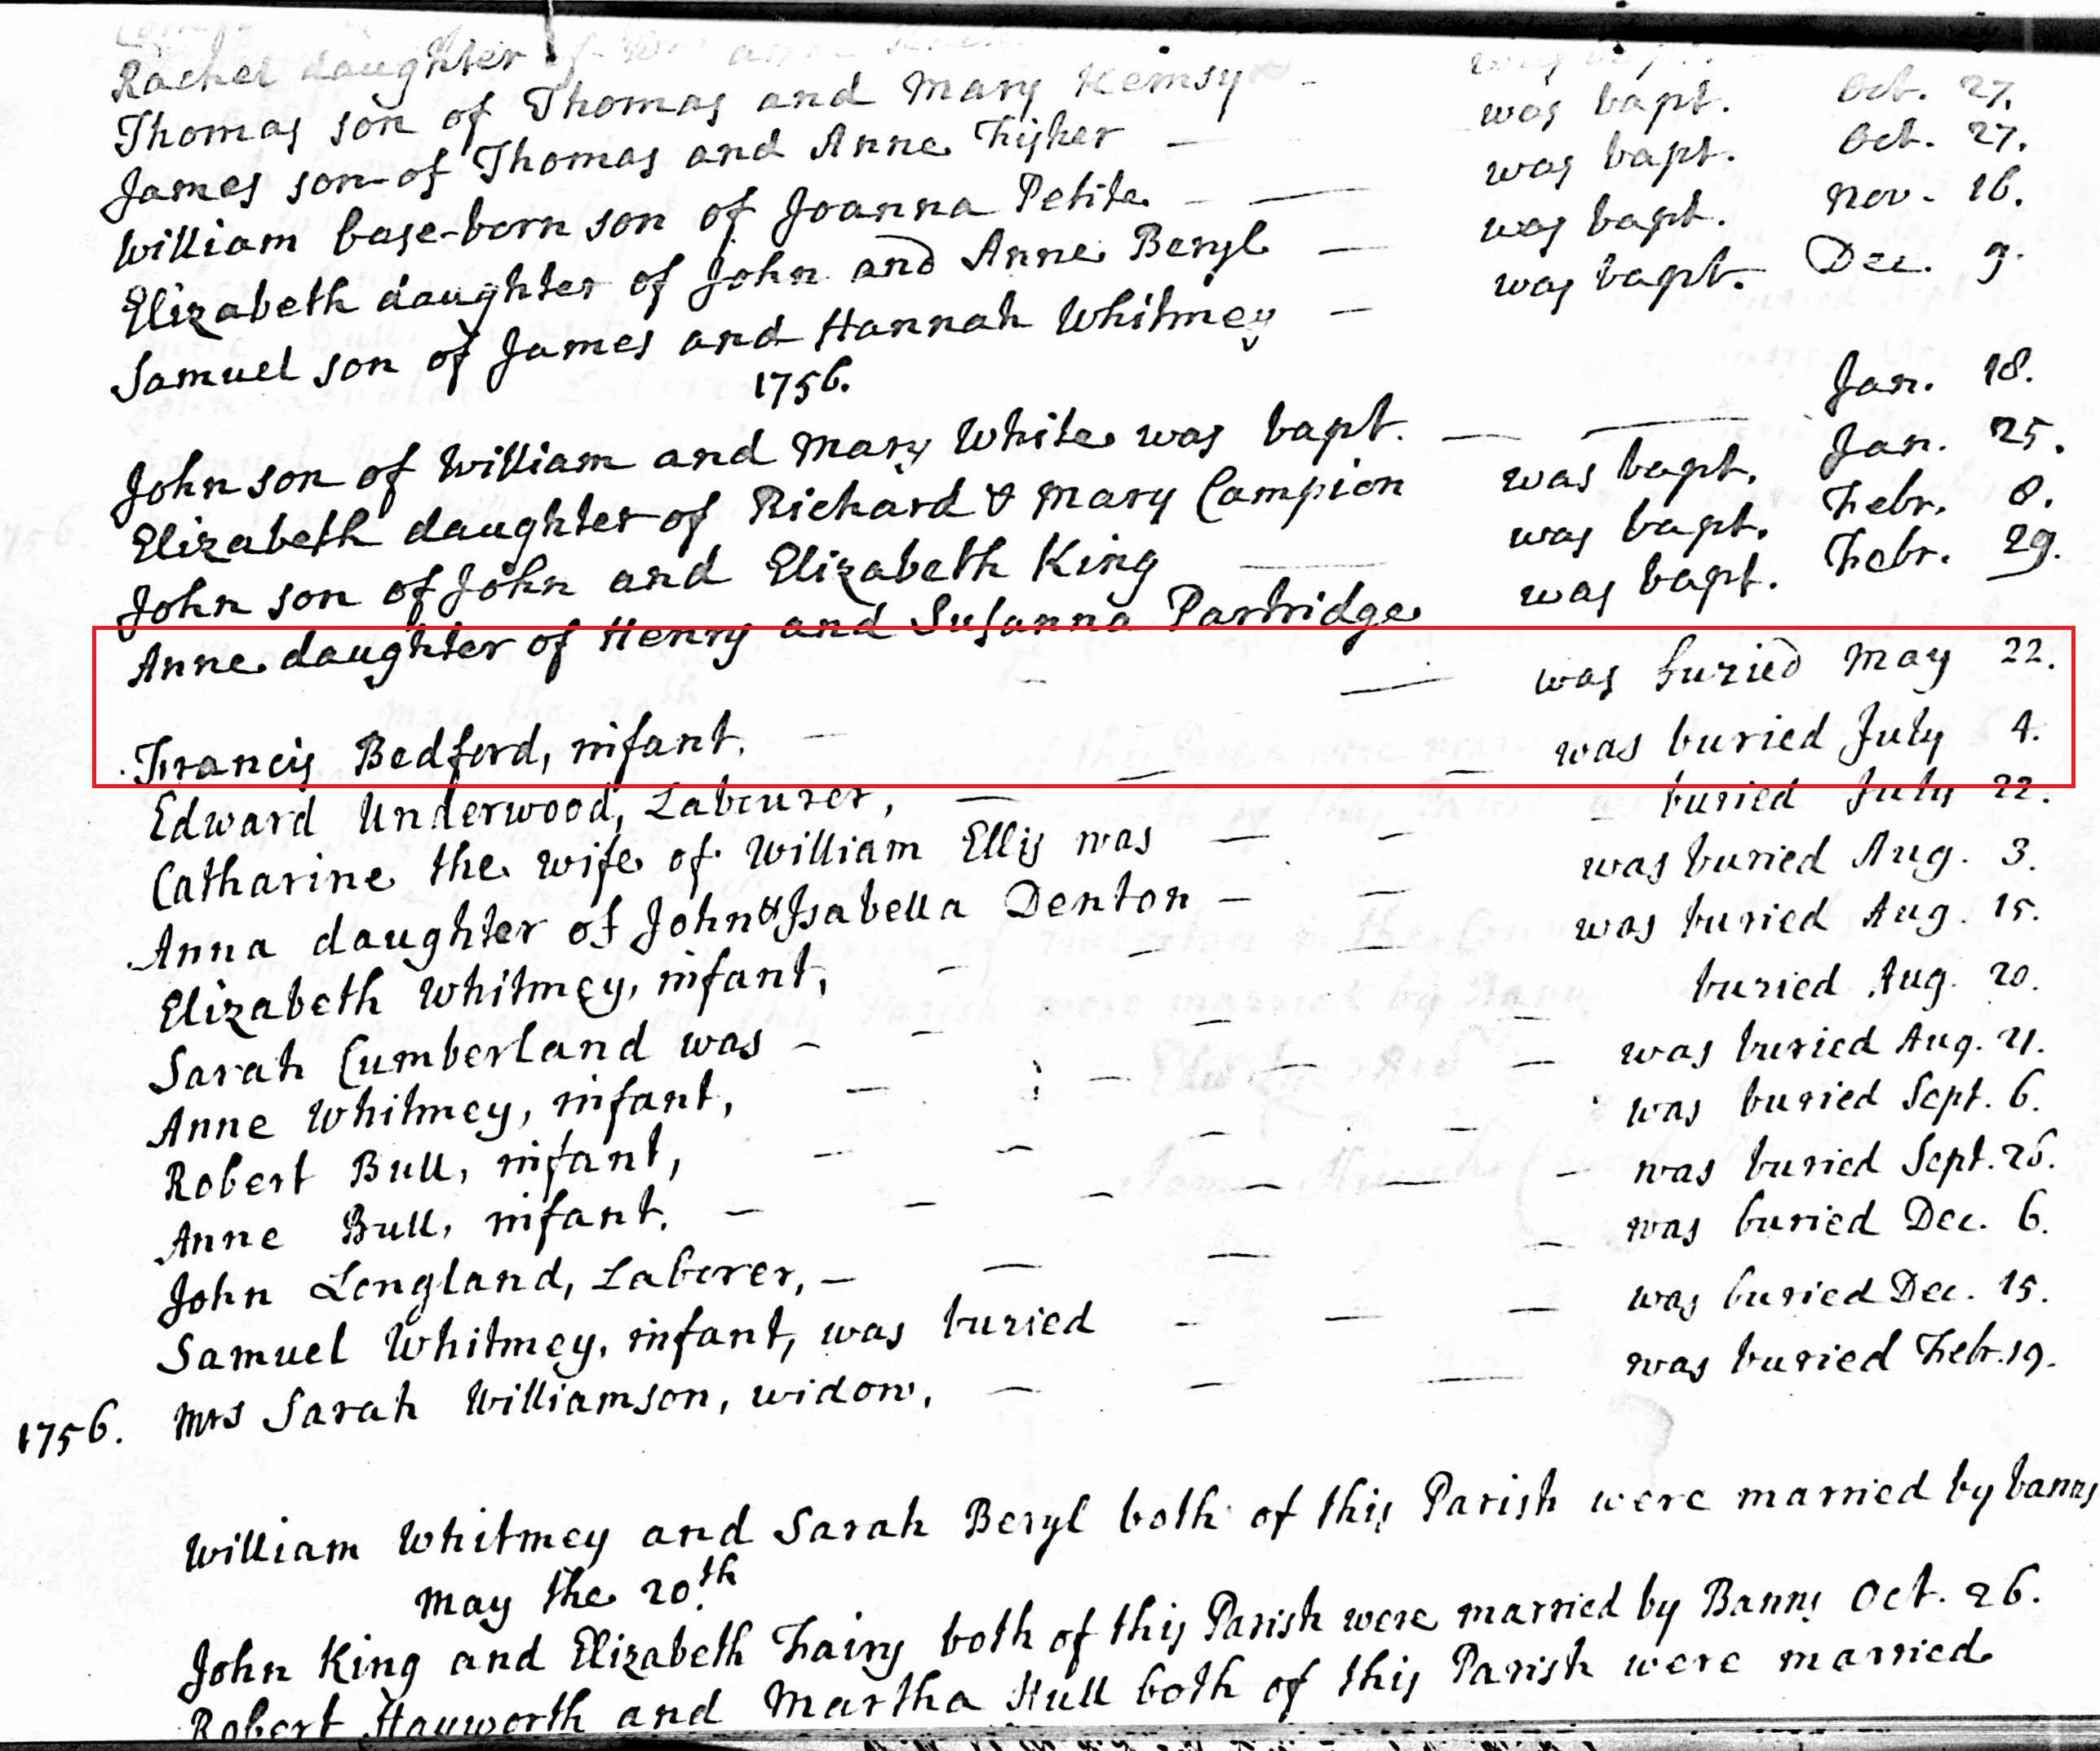 Rachel daughter of
Thomas son of Thomas and Mary Kemsy -
James son of Thomas and Anne Fisher — was bapt. Oct. 27.
William base-born son of Joanna Petite - — was bapt. Oct. 27.
Elizabeth daughter of John and Anne Beryl — was bapt. Nov. 16.
Samuel son of James and Hannah Whitmey — was bapt. Dec. 9.
1756.
John son of William and Mary White was bapt. — — Jan. 18.
Elizabeth daughter of Richard & Mary Campion was bapt. Jan. 25.
John son of John and Elizabeth King — was bapt. Febr. 8.
Anne daughter of Henry and Susanna Partridge was bapt. Febr. 29.
Francis Bedford, infant. - — was buried May 22.
Edward Underwood, Labourer, — — — was buried July 4.
Catharine the wife of William Ellis was — - buried July 22.
Anna daughter of John & Isabella Denton - — was buried Aug. 3.
Elizabeth Whitmey, infant, - - — was buried Aug. 15.
Sarah Cumberland was - - — — buried Aug. 20.
Anne Whitmey, infant, — — — — was buried Aug. 21.
Robert Bull, infant, - - — — was buried Sept. 6.
Anne Bull, infant. — - - — — - was buried Sept. 26.
John Longland, Laborer, — — — — was buried Dec. 6.
Samuel Whitmey, infant, was buried - — — was buried Dec. 15.
1756. Mrs Sarah Williamson, widow, — - — was buried Febr. 19.
William Whitmey and Sarah Beryl both of this Parish were married by banns
May the 20th
John King and Elizabeth Fairy both of this Parish were married by Banns Oct. 26.
Robert Hauworth and Martha Hull both of this Parish were married